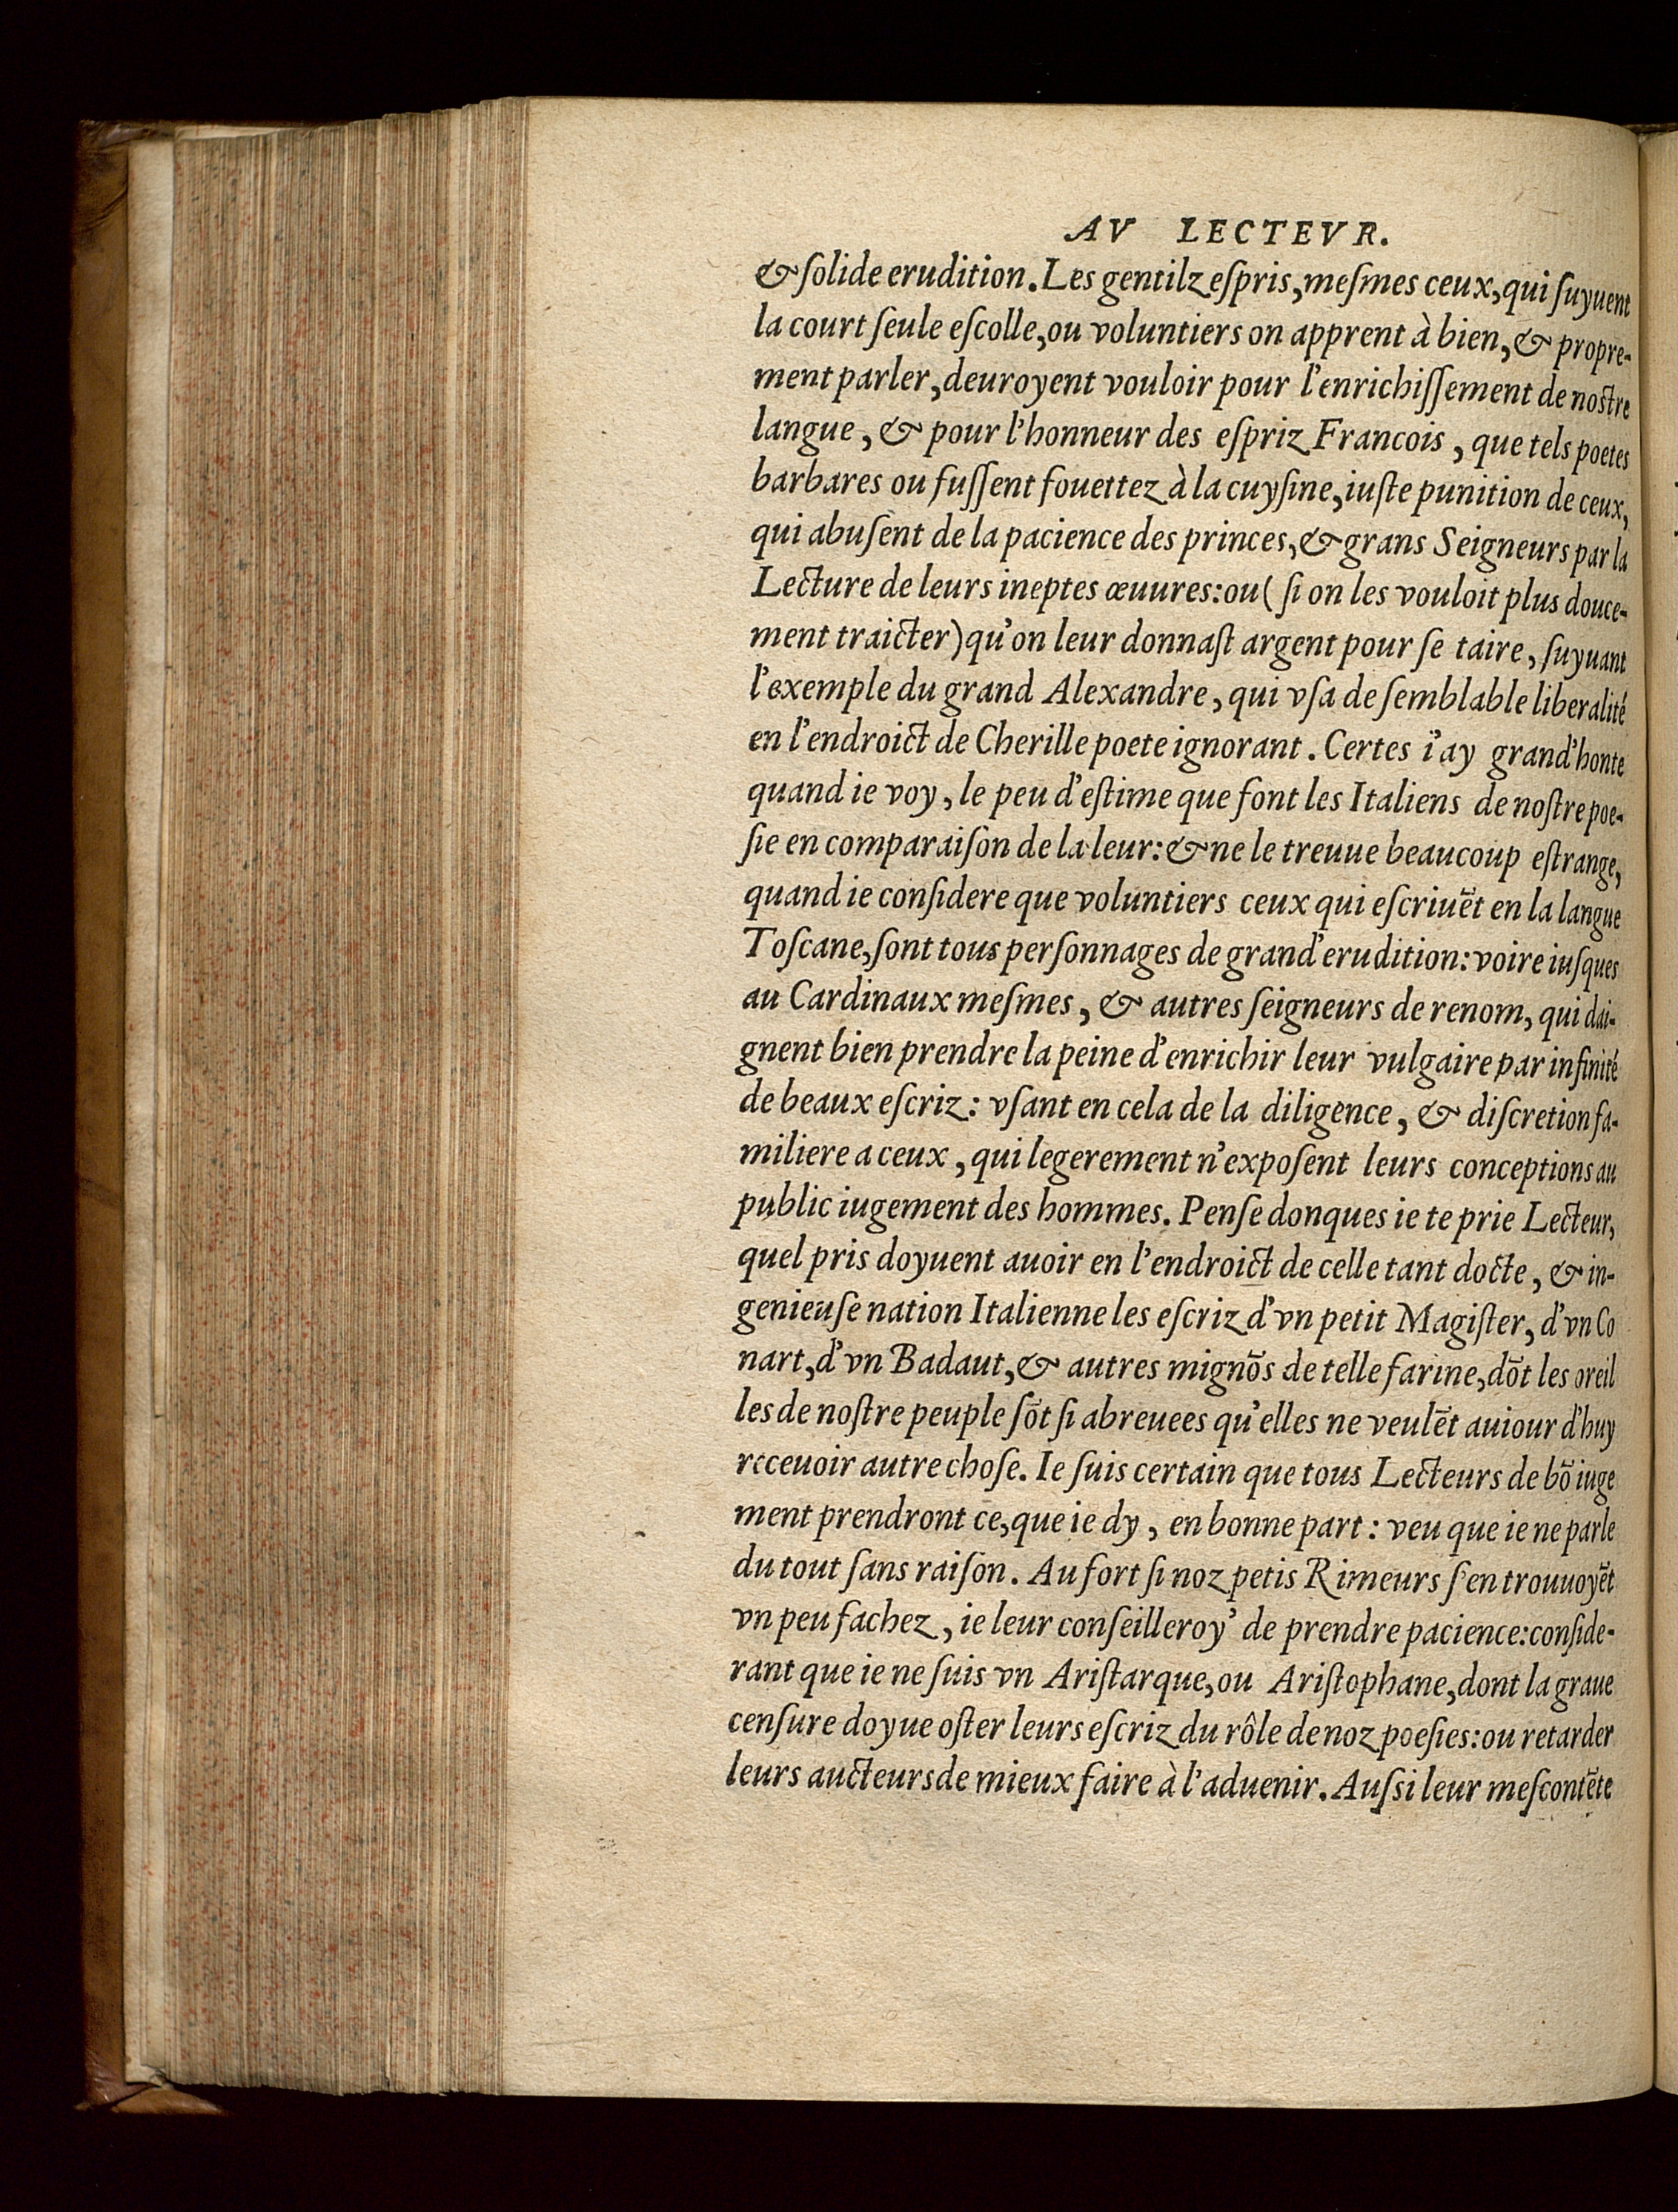 AV LECTEVR.
& ſolide erudition. Les gentilz eſpris, meſmes ceux, qui ſuyuent
la court ſeule eſcolle, ou voluntiers on apprent à bien, & propre-
ment parler, deuroyent vouloir pour l'enrichiſſement de noſtre
langue, & pour l'honneur des eſpriz Francois, que tels poetes
barbares ou fuſſent fouettez à la cuyſine, iuſte punition de ceux,
qui abuſent de la pacience des princes, & grans Seigneurs par la
Lecture de leurs ineptes œuures: ou (ſi on les vouloit plus douce-
ment traicter) qu'on leur donnaſt argent pour ſe taire, ſuyuant
l'exemple du grand Alexandre, qui vſa de ſemblable liberalité
en l'endroict de Cherille poete ignorant. Certes i'ay grand'honte
quand ie voy, le peu d'eſtime que font les Italiens de noſtre poe-
ſie en comparaiſon de la leur: & ne le treuue beaucoup eſtrange,
quand ie conſidere que voluntiers ceux qui eſcriuēt en la langue
Toſcane, ſont tous perſonnages de grand'erudition: voire iuſques
au Cardinaux meſmes, & autres ſeigneurs de renom, qui dai-
gnent bien prendre la peine d'enrichir leur vulgaire par infinité
de beaux eſcriz: vſant en cela de la diligence, & diſcretion fa-
miliere a ceux, qui legerement n'expoſent leurs conceptions au
public iugement des hommes. Penſe donques ie te prie Lecteur,
quel pris doyuent auoir en l'endroict de celle tant docte, & in-
genieuſe nation Italienne les eſcriz d'vn petit Magiſter, d'vn Co
nart, d'vn Badaut, & autres mignōs de telle farine, dōt les oreil
les de noſtre peuple ſōt ſi abreuees qu'elles ne veulēt auiourd'huy
receuoir autre choſe. Ie ſuis certain que tous Lecteurs de bō iuge
ment prendront ce, que ie dy, en bonne part: veu que ie ne parle
du tout ſans raiſon. Au fort ſi noz petis Rimeurs ſ'en trouuoyēt
vn peu fachez, ie leur conſeilleroy' de prendre pacience: conſide-
rant que ie ne ſuis vn Ariſtarque, ou Ariſtophane, dont la graue
cenſure doyue oſter leurs eſcriz du rôle de noz poeſies: ou retarder
leurs aucteurs de mieux faire à l'aduenir. Auſsi leur meſcontēte